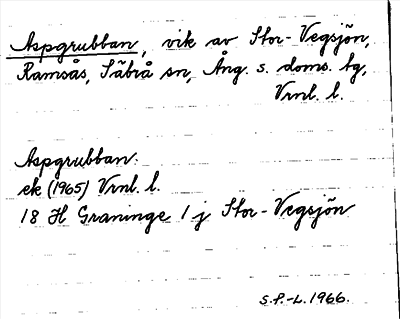 Aspgrubban, vik av Stor-Vegsjön,
Ramsås, Säbrå sn, Ång. s. doms. tg,
Vrnl. l.
Aspgrubban.
ek (1965) Vrnl. l.
18 H Graninge 1 j Stor-Vegsjön
S.P.-L. 1966.